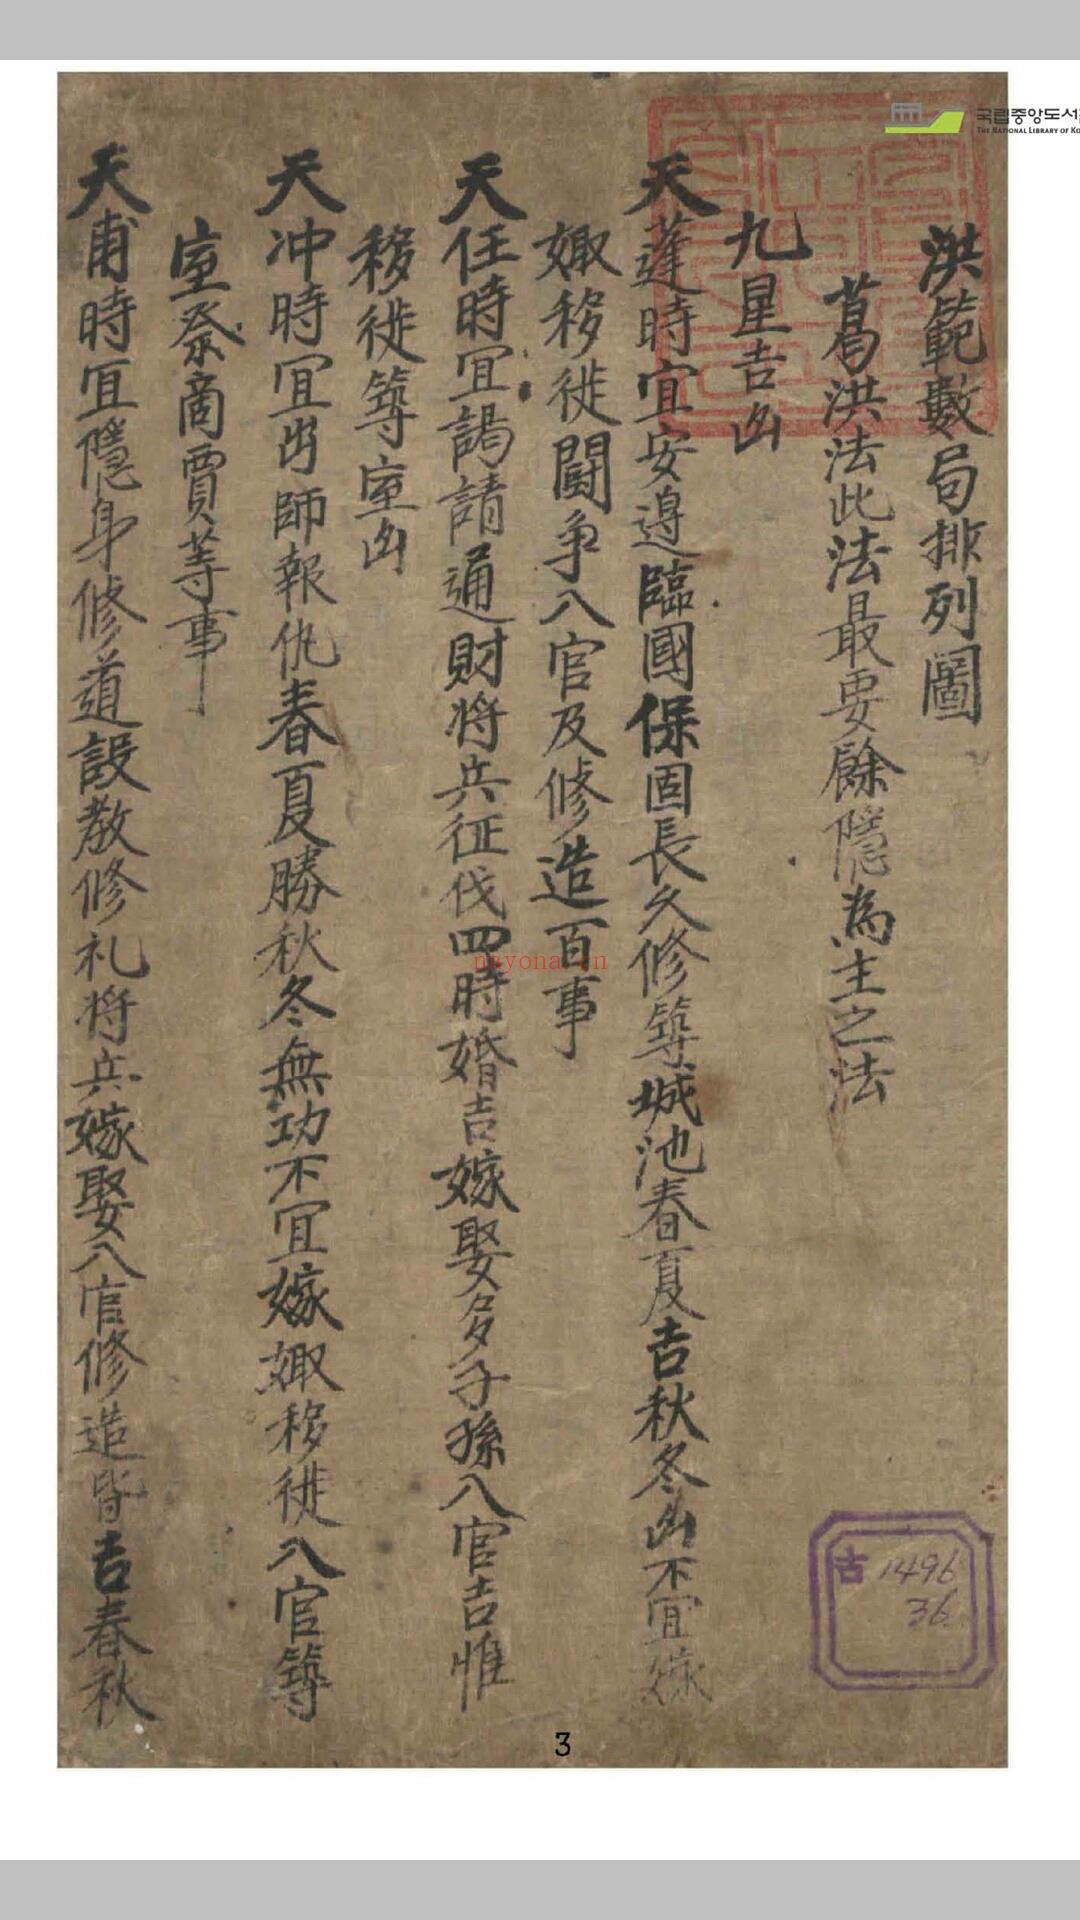 洪範數局排列圖
葛洪法此法最要餘隱為主之法
九星吉凶
天蓬時宜安邊臨國保固長久修築城池春夏吉秋冬凶不宜嫁
娵移徙鬪争八官及修造百事
天任時冝謁請通財将兵征伐四時婚吉嫁娶多子孫八官吉惟
移徙築室凶
天冲時冝出師報仇春夏勝秋冬無功不冝嫁娵移徙八官築
室祭商賈等事
天甫時冝隱身修道設教修礼将兵嫁娶八官修造皆吉春秋
국립중앙도서
THE NATIONAL LIBRARY OF KO
nayona.cn
古 1496
36
3